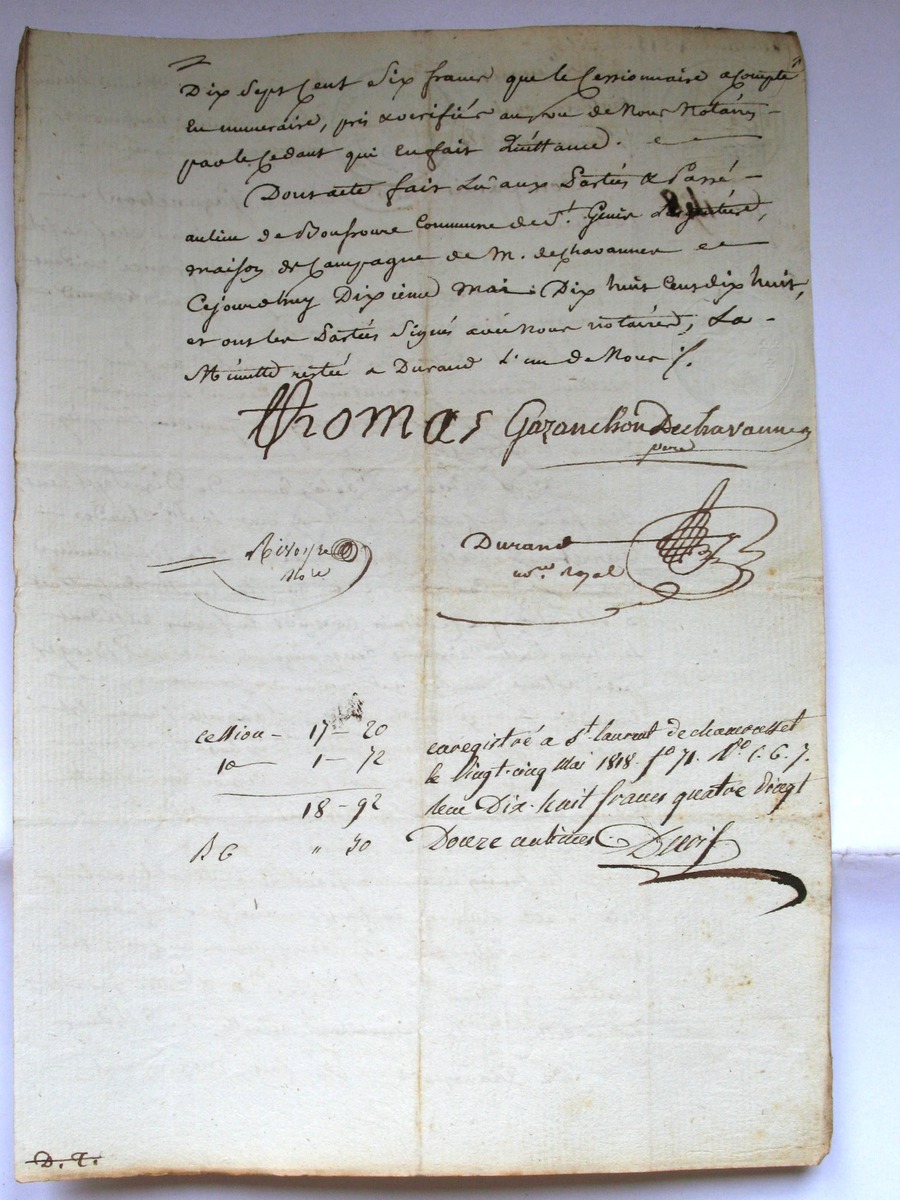 Dix Sept Cent Six francs que le Cessionnaire a compté
en numeraire, pris & verifiés au vu de Nous Notaires
par le Cedant qui en fait Quittance.
Dont acte fait Lû aux Parties & Passé
au lieu de Commune de St. Genis L'argentiere,
maison de Campagne de M. dechavannes
Cejourdhuy Dixieme mai Dix huit Cent dix huit,
et ont les Parties Signés avec Nous notaires, La
Minutte restée a Durand L'un de Nous
Thomas Gazanchon Dechavannes
pere
Rivoyre
Nore
Durand
royal
cession 17 - 20
1 - 72
18 - 92
" 50
enregistré a St. laurent de chamousset
le Vingt-cinq Mai 1818. fo 71. Ro C. 6. 7.
Dix-huit francs quatre vingt
Douze centimes
D. T.